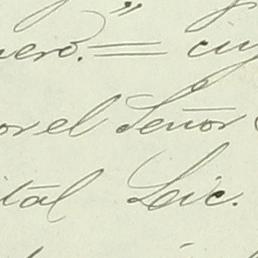 nero. = cuy
or el Señor
ital Leic.